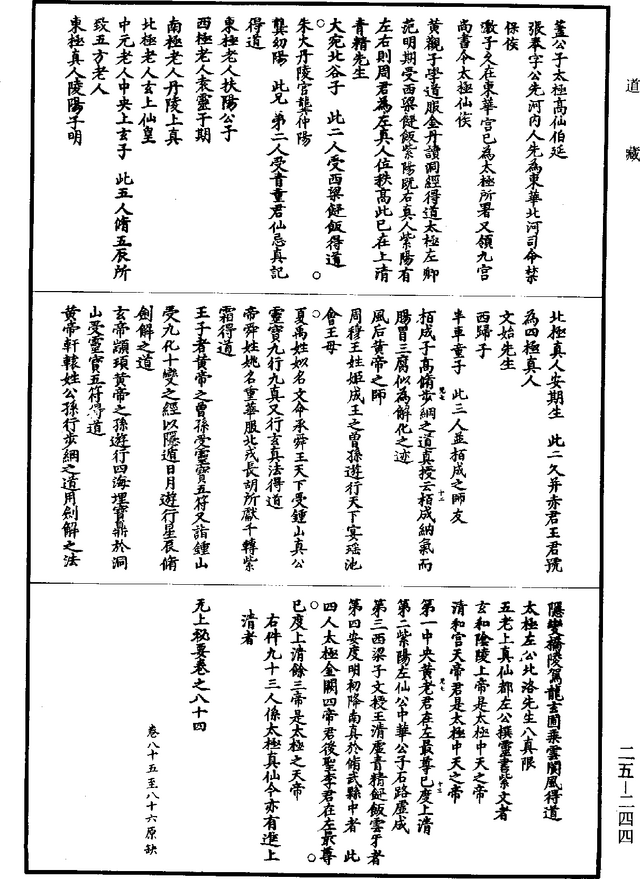 道藏
蓋公子太極高仙伯延
張奉字公先河内人先為東華北河司命禁
保侯
澂子久在東華宫已為太極所署又領九宫
尚書令太極仙侯
黄觀子學道服金丹讀洞經得道太極左卿
范明期受西梁䭀飯紫陽既右真人紫陽有
左右則周君為左真人位秩高此已在上清
青精先生
大宛北谷子　此二人受西梁䭀飯得道
朱大丹陵宫龔仲陽
龔幼陽　此兄弟二人受青童君仙忌真記
得道
東極老人扶陽公子
西極老人袁靈于期
南極老人丹陵上真
北極老人玄上仙皇
中元老人中央上玄子　此五人脩五辰所
致五方老人
東極真人陵陽子明
北極真人安期生　此二久并赤君王君號
為四極真人
文始先生
西歸子
芈車童子　此三人並栢成之師友
栢成子高脩步綱之道真授云栢成納氣而
腸胃三腐似為解化之迹
風后黄帝之師
周穆王姓姬成王之曾孫遊行天下宴瑶池
會王母
夏禹姓姒名文命承舜王天下受鍾山真公
靈寶九行九真又行玄真法得道
帝舜姓姚名重華服北戎長胡所獻千轉紫
霜得道
王子者黄帝之曾孫受靈寶五符又詣鍾山
受九化十變之經以隱遁日月遊行星辰脩
劍解之道
玄帝顓頊黄帝之孫遊行四海埋寶鼎於洞
山受靈寶五符得道
黄帝軒轅姓公孫行步綱之道用劍解之法
隱變橋陵駕龍玄圃乘雲閬風得道
太極左公北洛先生八真限
五老上真仙都左公撰靈書紫文者
玄和陰陵上帝是太極中天之帝
清和宫天帝君是太極中天之帝
第一中央黄老君在左最尊已度上清
第二紫陽左仙公中華公子石路虚成
第三西梁子文授王清虚青精䭀飯雲牙者
第四安度明初降南真於脩武縣中者　此
四人太極金闕四帝君後聖李君在左最尊
已度上清餘三帝是太極之天帝
右件九十三人係太極真仙今亦有進上
清者
无上秘要卷之八十四
卷八十五至八十六原缺
二五—二四四